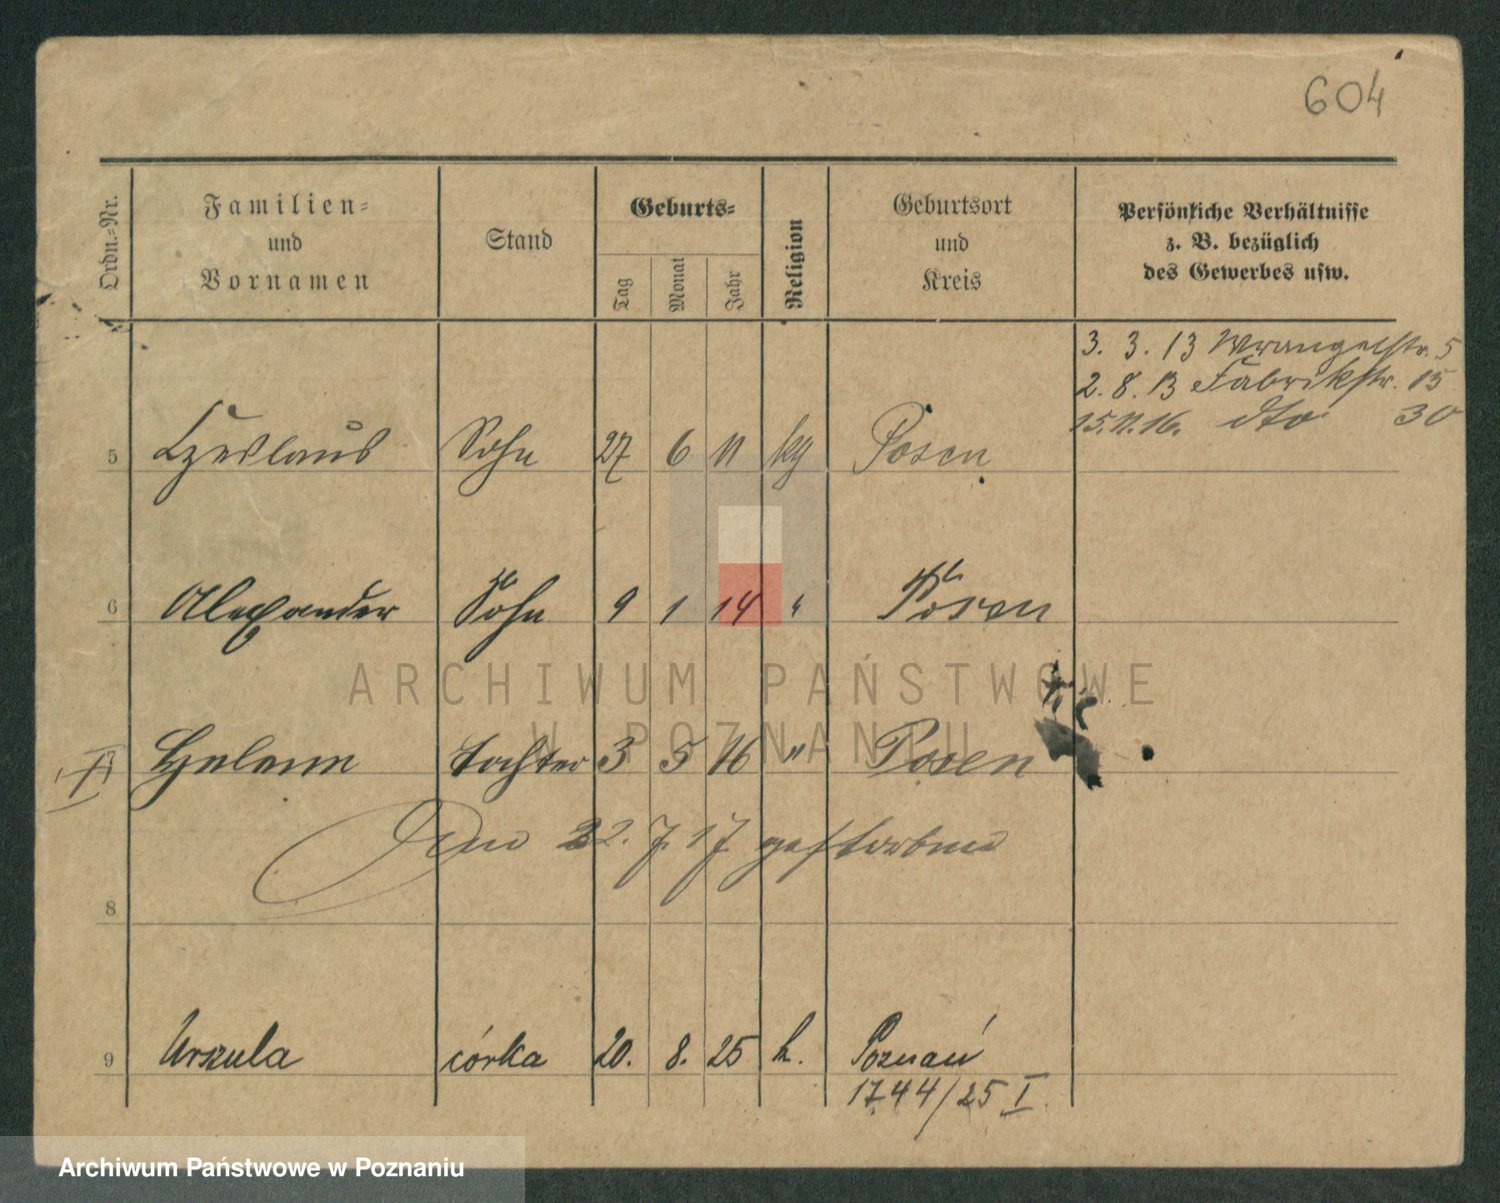 604
Ordn.=Nr.
Familien=
und
Vornamen
Stand
Geburts=
Tag
Monat
Jahr
Religion
Geburtsort
und
Kreis
Persönliche Verhältnisse
z. B. bezüglich
des Gewerbes usw.
3. 3. 13 Wrangelstr. 5
2. 8. 13 Fabrikstr. 15
15.11.16. dto 30
5 Czeslaus Sohn 27 6 11 kg Posen
6 Alexander Sohn 9 1 14 " Posen
Helene Tochter 3 5 16 " Posen
Den 22. 7. 17 gestorben
8
9 Urszula córka 20. 8. 25 k. Poznań
1744/25 I
ARCHIWUM PAŃSTWOWE
W POZNANIU
Archiwum Państwowe w Poznaniu